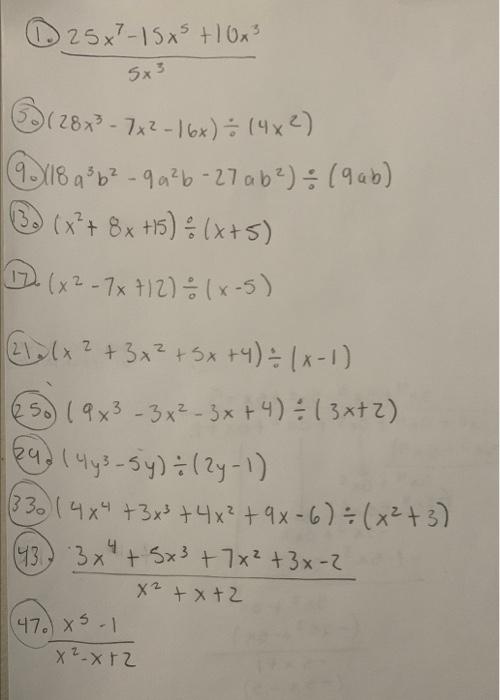 1. 25x⁷ - 15x⁵ + 10x³
5x³
5. (28x³ - 7x² - 16x) ÷ (4x²)
9. (18a³b² - 9a²b - 27ab²) ÷ (9ab)
13. (x² + 8x + 15) ÷ (x + 5)
17. (x² - 7x + 12) ÷ (x - 5)
21. (x² + 3x² + 5x + 4) ÷ (x - 1)
25. (9x³ - 3x² - 3x + 4) ÷ (3x + 2)
29. (4y³ - 5y) ÷ (2y - 1)
33. (4x⁴ + 3x³ + 4x² + 9x - 6) ÷ (x² + 3)
43. 3x⁴ + 5x³ + 7x² + 3x - 2
x² + x + 2
47. x⁵ - 1
x² - x + 2